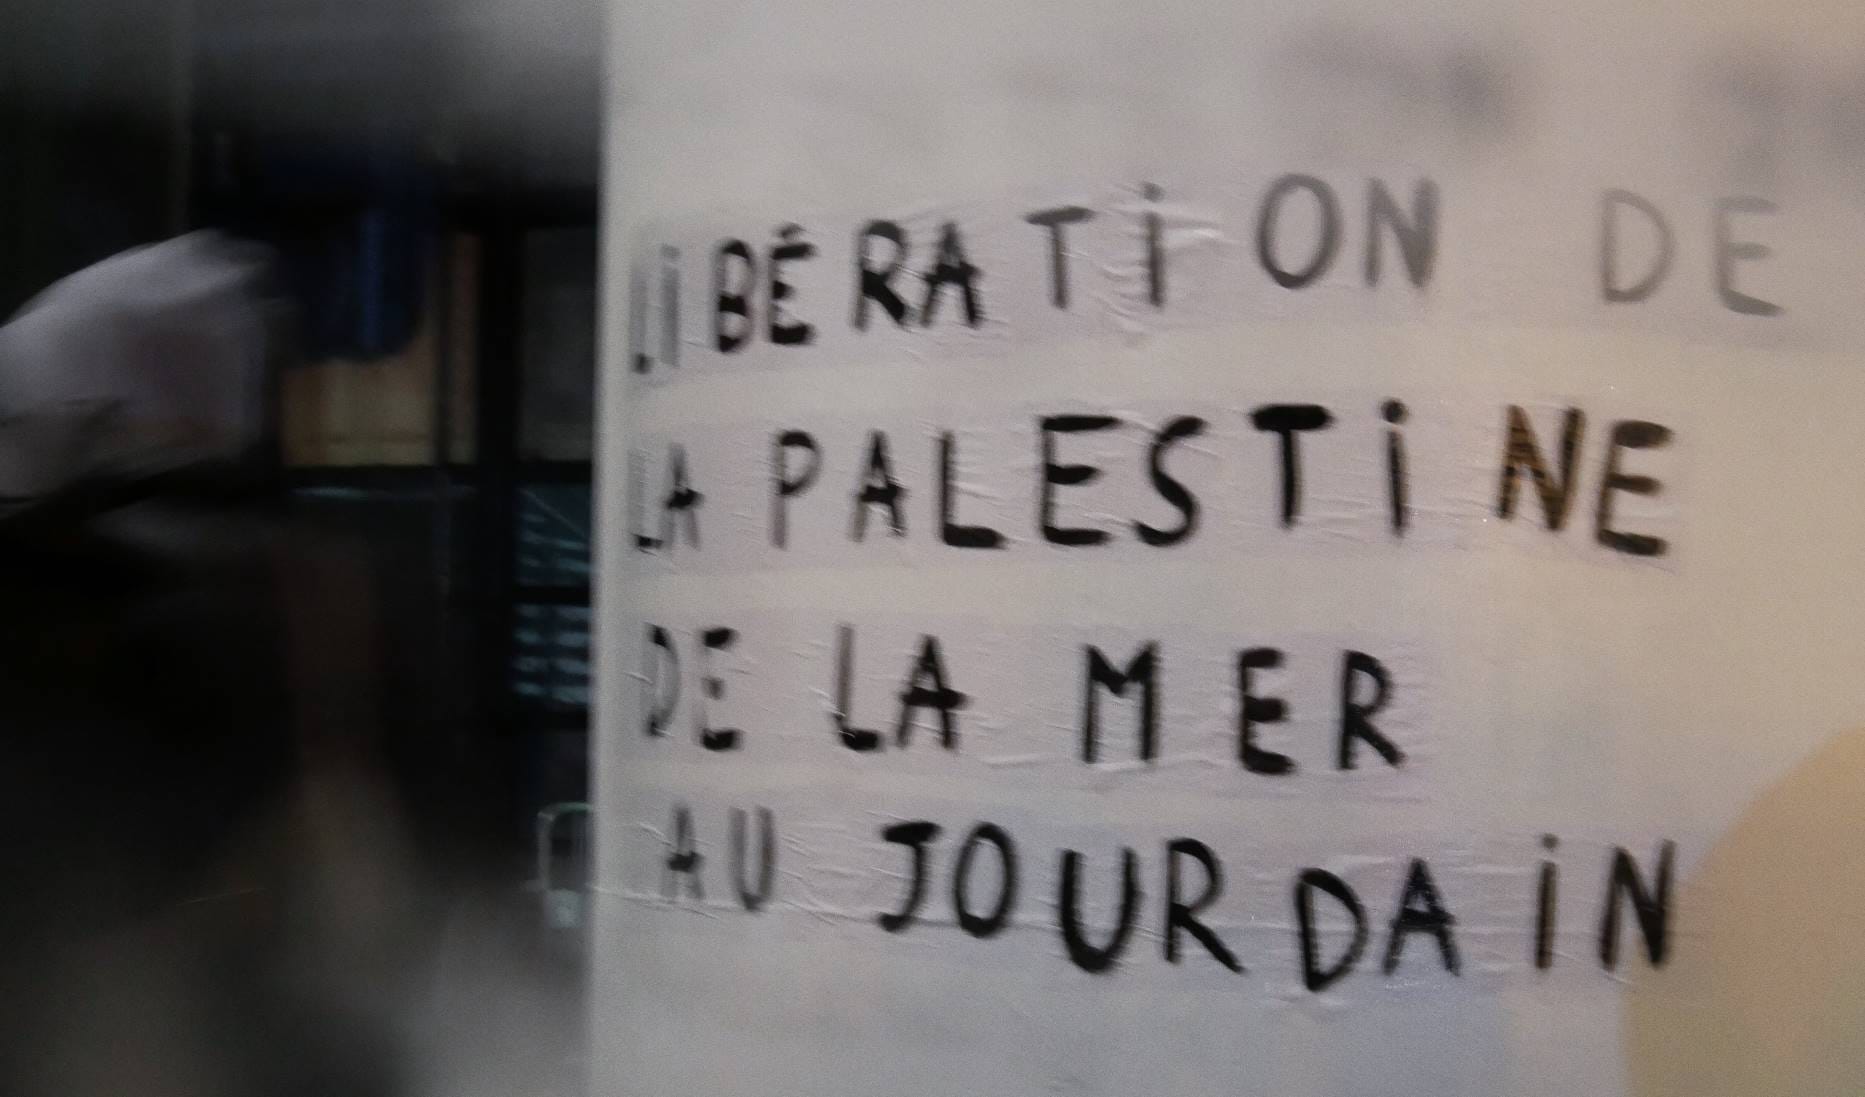 LiBÉRATiON DE
LA PALESTiNE
DE LA MER
AU JOURDAiN